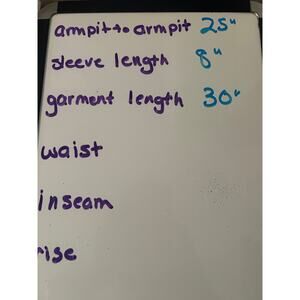 armpit to armpit 25"
sleeve length 8"
garment length 30"
waist
inseam
rise